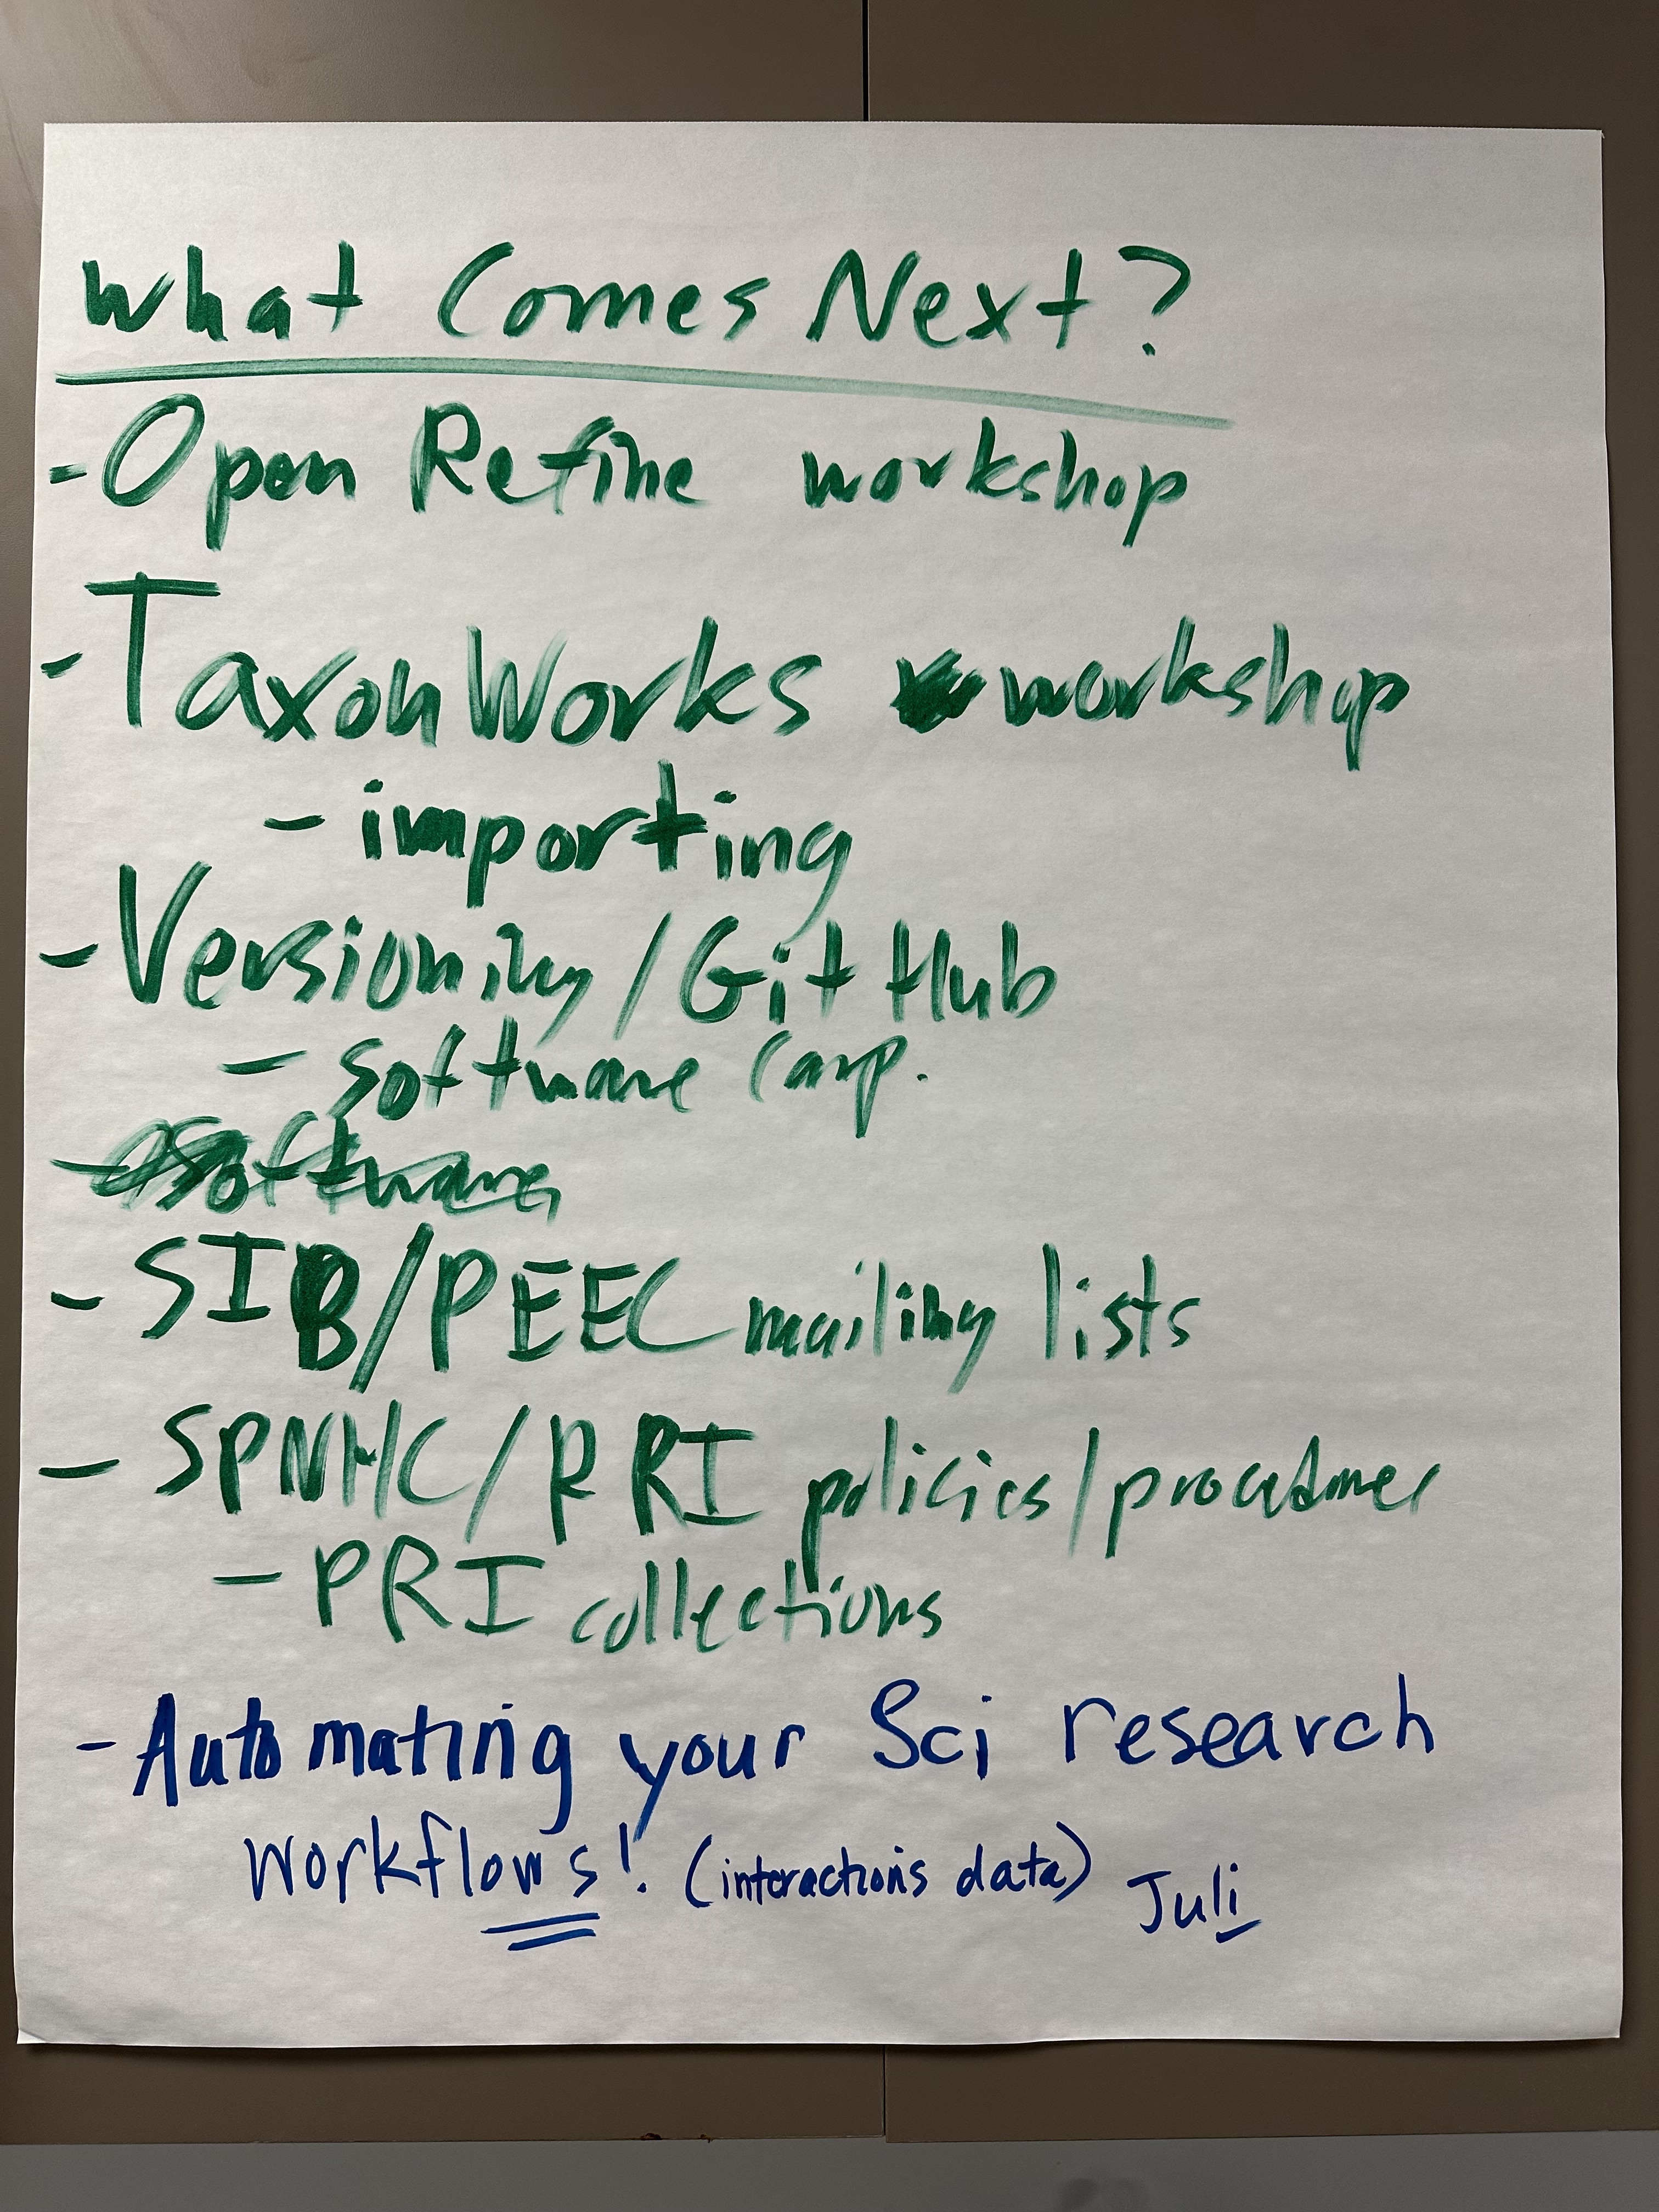 What Comes Next?
- Open Refine workshop
- TaxonWorks workshop
- importing
- Versioning/GitHub
- software Carp.
- software
- SIB/PEEC mailing lists
- SPNHC/PRI policies/procedures
- PRI collections
- Automating your Sci research
workflows! (interactions data) Juli